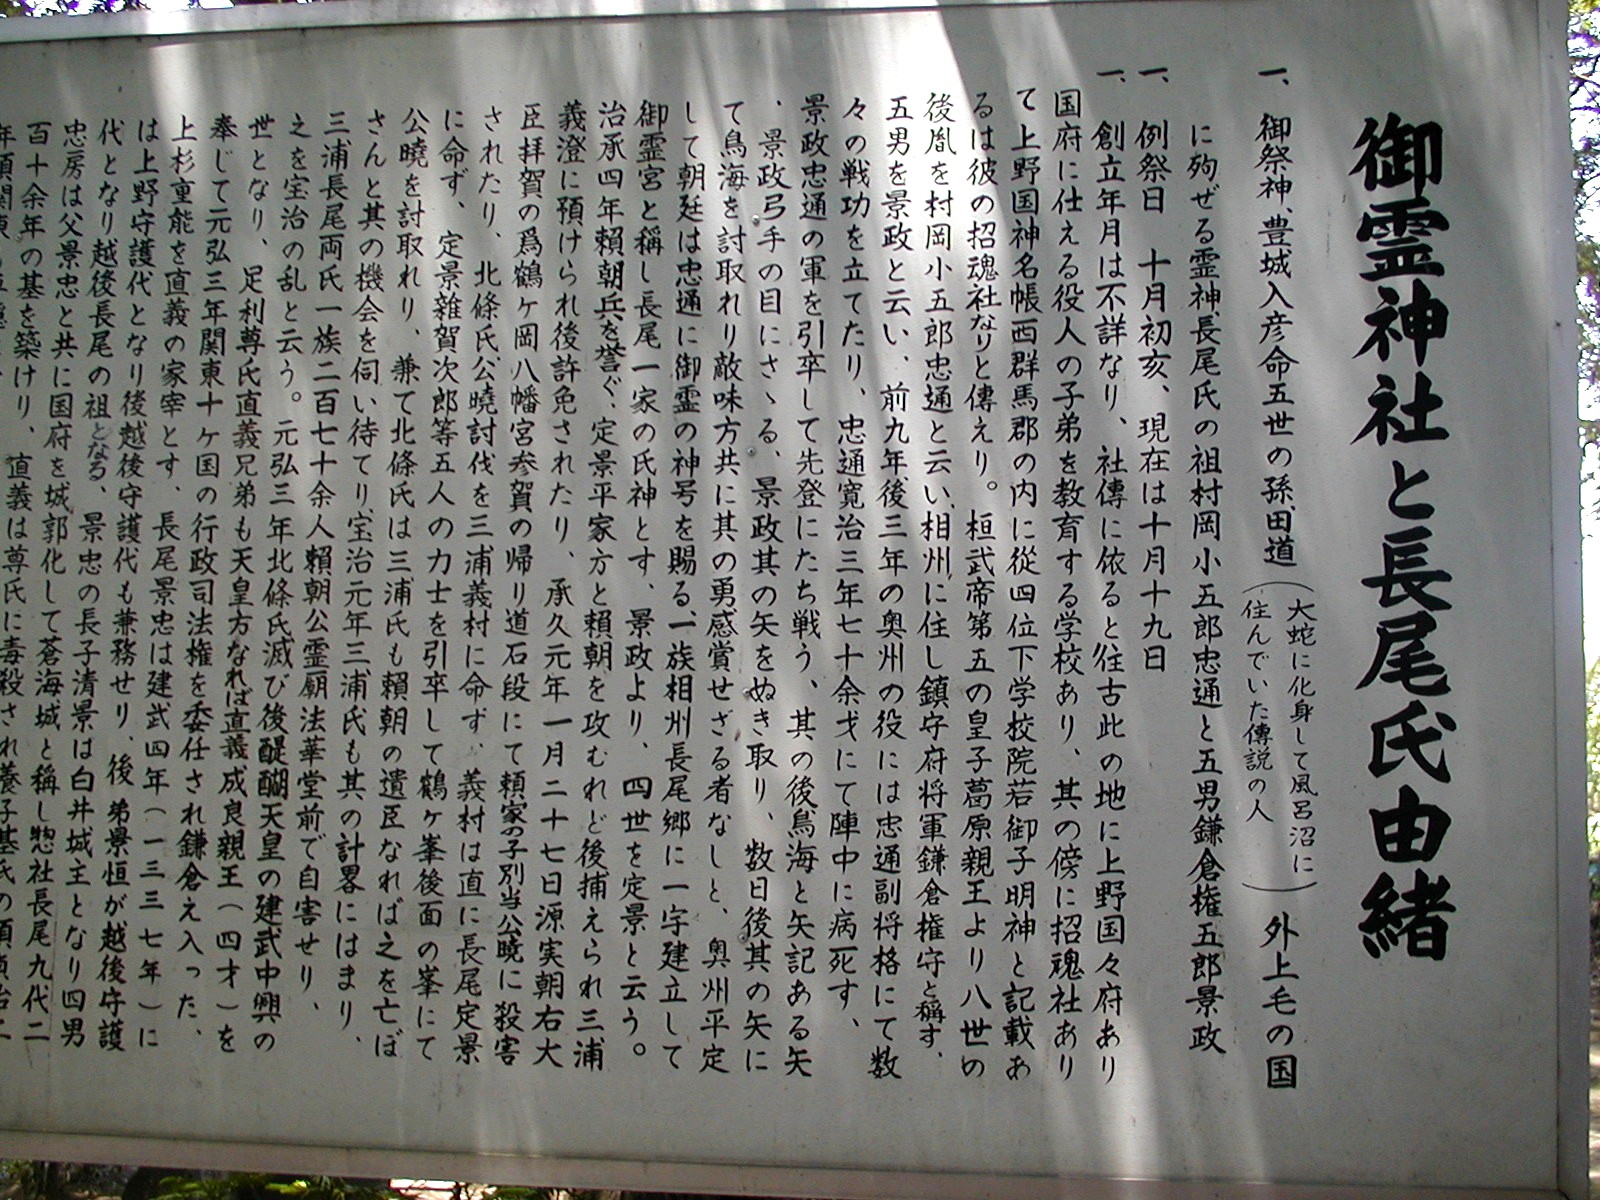 御霊神社と長尾氏由緒
一、御祭神、豊城入彦命五世の孫、田道(大蛇に化身して風呂沼に住んでいた傳説の人)外上毛の国
に殉ぜる霊神、長尾氏の祖村岡小五郎忠通と五男鎌倉権五郎景政
一、例祭日 十月初亥、現在は十月十九日
一、創立年月は不詳なり、社傳に依ると往古此の地に上野国々府あり
国府に仕える役人の子弟を教育する学校あり、其の傍に招魂社あり
て上野国神名帳西群馬郡の内に從四位下学校院若御子明神と記載あ
るは彼の招魂社なりと傳えり。桓武帝第五の皇子葛原親王より八世の
後胤を村岡小五郎忠通と云い、相州に住し鎮守府将軍鎌倉権守と稱す、
五男を景政と云い、前九年後三年の奥州の役には忠通副将格にて数
々の戦功を立てたり、忠通寛治三年七十余才にて陣中に病死す、
景政忠通の軍を引卒して先登にたち戦う、其の後鳥海と矢記ある矢
、景政弓手の目にさゝる、景政其の矢をぬき取り、数日後其の矢に
て鳥海を討取れり敵味方共に其の勇感賞せざる者なしと、奥州平定
して朝廷は忠通に御霊の神号を賜る、一族相州長尾郷に一宇建立して
御霊宮と稱し長尾一家の氏神とす、景政より、四世を定景と云う。
治承四年頼朝兵を誉ぐ、定景平家方と頼朝を攻むれど後捕えられ三浦
義澄に預けられ後許免されたり、承久元年一月二十七日源実朝右大
臣拝賀の爲鶴ヶ岡八幡宮参賀の帰り道石段にて頼家の子別当公暁に殺害
されたり、北條氏公暁討伐を三浦義村に命ず、義村は直に長尾定景
に命ず、定景雑賀次郎等五人の力士を引卒して鶴ヶ峯後面の峯にて
公暁を討取れり、兼て北條氏は三浦氏も頼朝の遺臣なれば之を亡ぼ
さんと其の機会を伺い待てり、宝治元年三浦氏も其の計畧にはまり、
三浦長尾両氏一族二百七十余人頼朝公霊廟法華堂前で自害せり、
之を宝治の乱と云う。元弘三年北條氏滅び後醍醐天皇の建武中興の
世となり、足利尊氏直義兄弟も天皇方なれば直義成良親王(四才)を
奉じて元弘三年関東十ヶ国の行政司法権を委任され鎌倉え入った、
上杉重能を直義の家宰とす、長尾景忠は建武四年(一三三七年)に
は上野守護代となり後越後守護代も兼務せり、後弟景恒が越後守護
代となり越後長尾の祖となる、景忠の長子清景は白井城主となり四男
忠房は父景忠と共に国府を城郭化して蒼海城と稱し惣社長尾九代二
百十余年の基を築けり、直義は尊氏に毒殺され養子基氏の頃貞治二
年頃関東